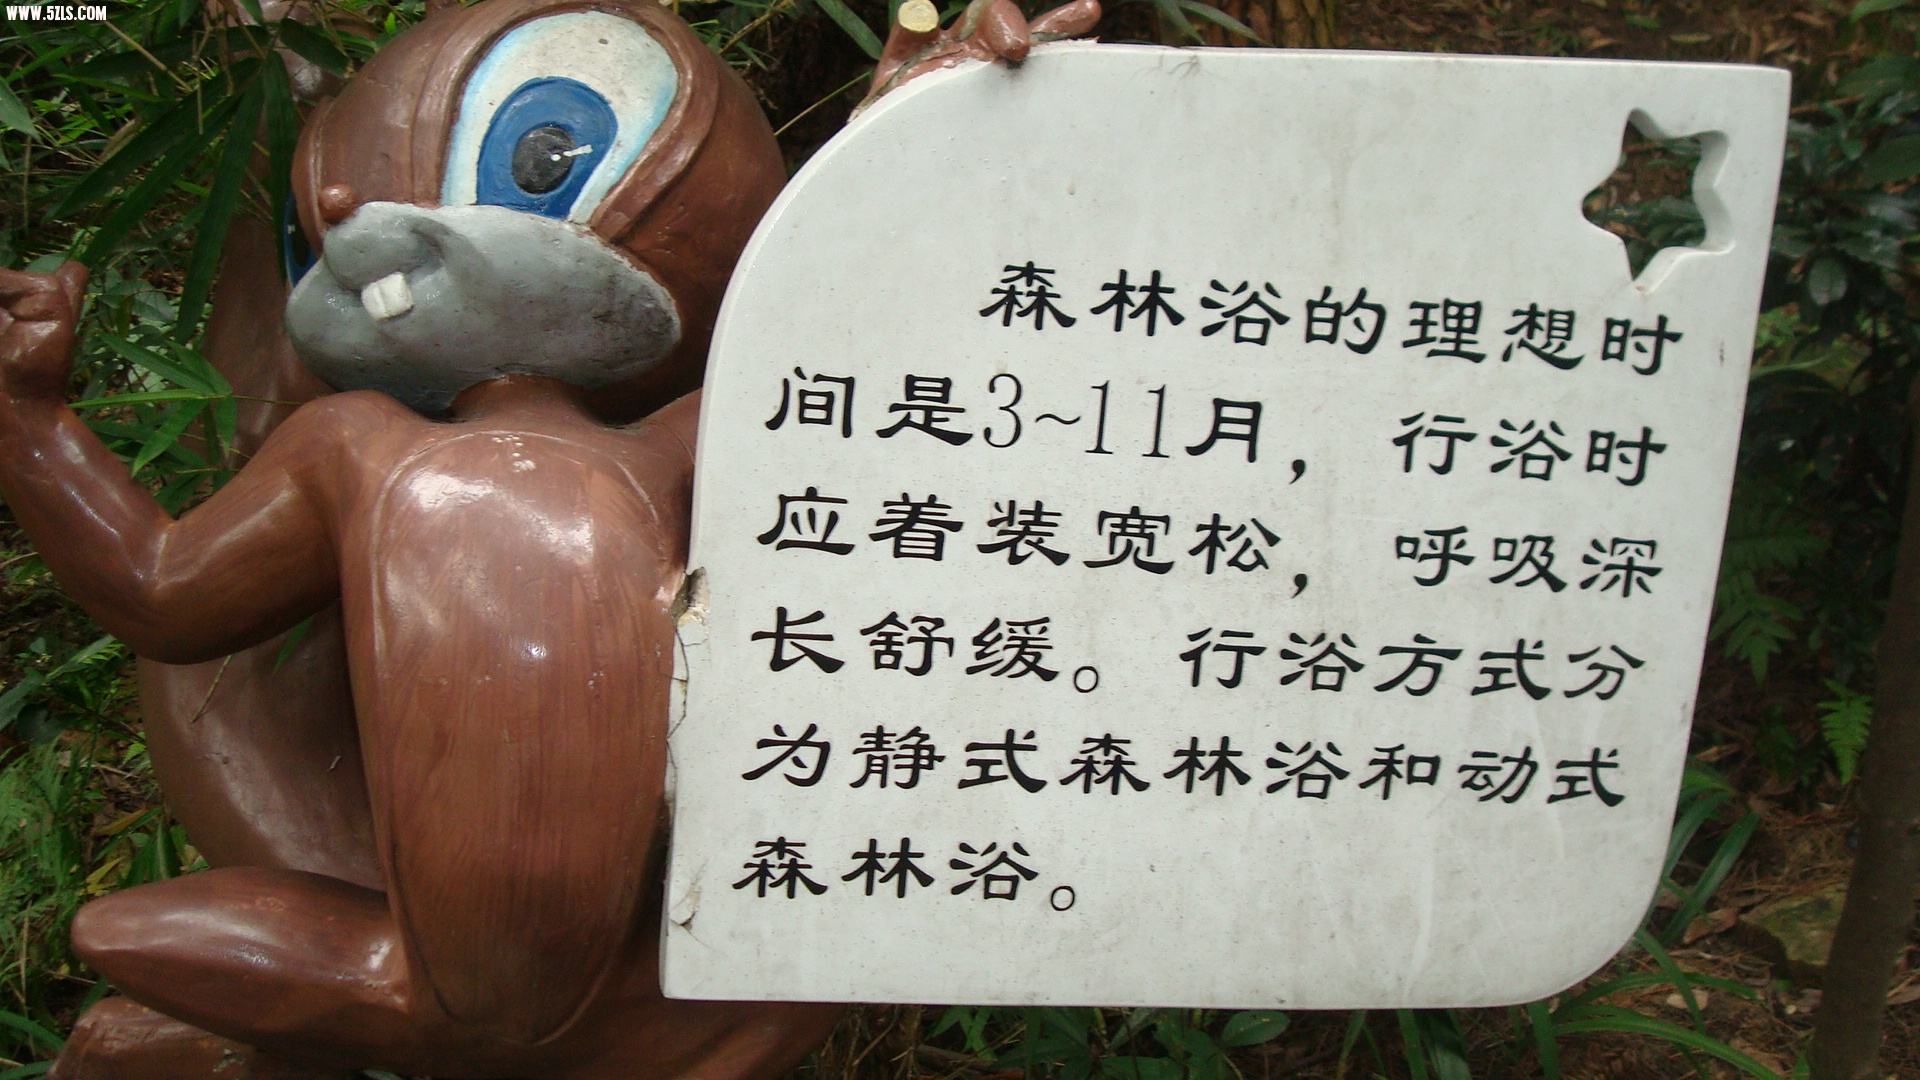 WWW.5ZLS.COM
森林浴的理想时
间是3~11月，行浴时
应着装宽松，呼吸深
长舒缓。行浴方式分
为静式森林浴和动式
森林浴。